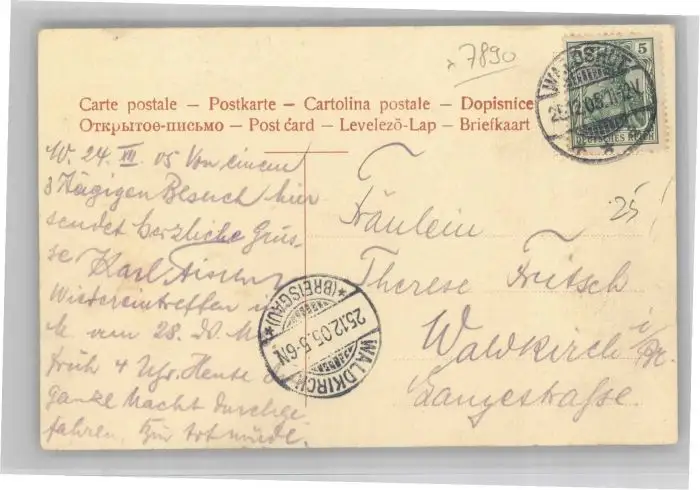 x 7890
Carte postale – Postkarte – Cartolina postale – Dopisnice
Открытое-письмо – Post card – Levelező-Lap – Briefkaart
W. 24. XII. 05 Von einem
3 tägigen Besuch hier
sendet herzliche Grüs-
se Karl
Wiedereintreffen in
M. am 28. ds. M.
früh 4 Uhr. Heute
ganze Nacht durchge-
fahren. Zur
Fräulein
Therese Fritsch
Waldkirch i/Br.
Langestraße.
25
WALDSHUT
25.12.05.11-12V.
5
DEUTSCHES REICH
WALDKIRCH
25.12.05.5-6N.
(BREISGAU)